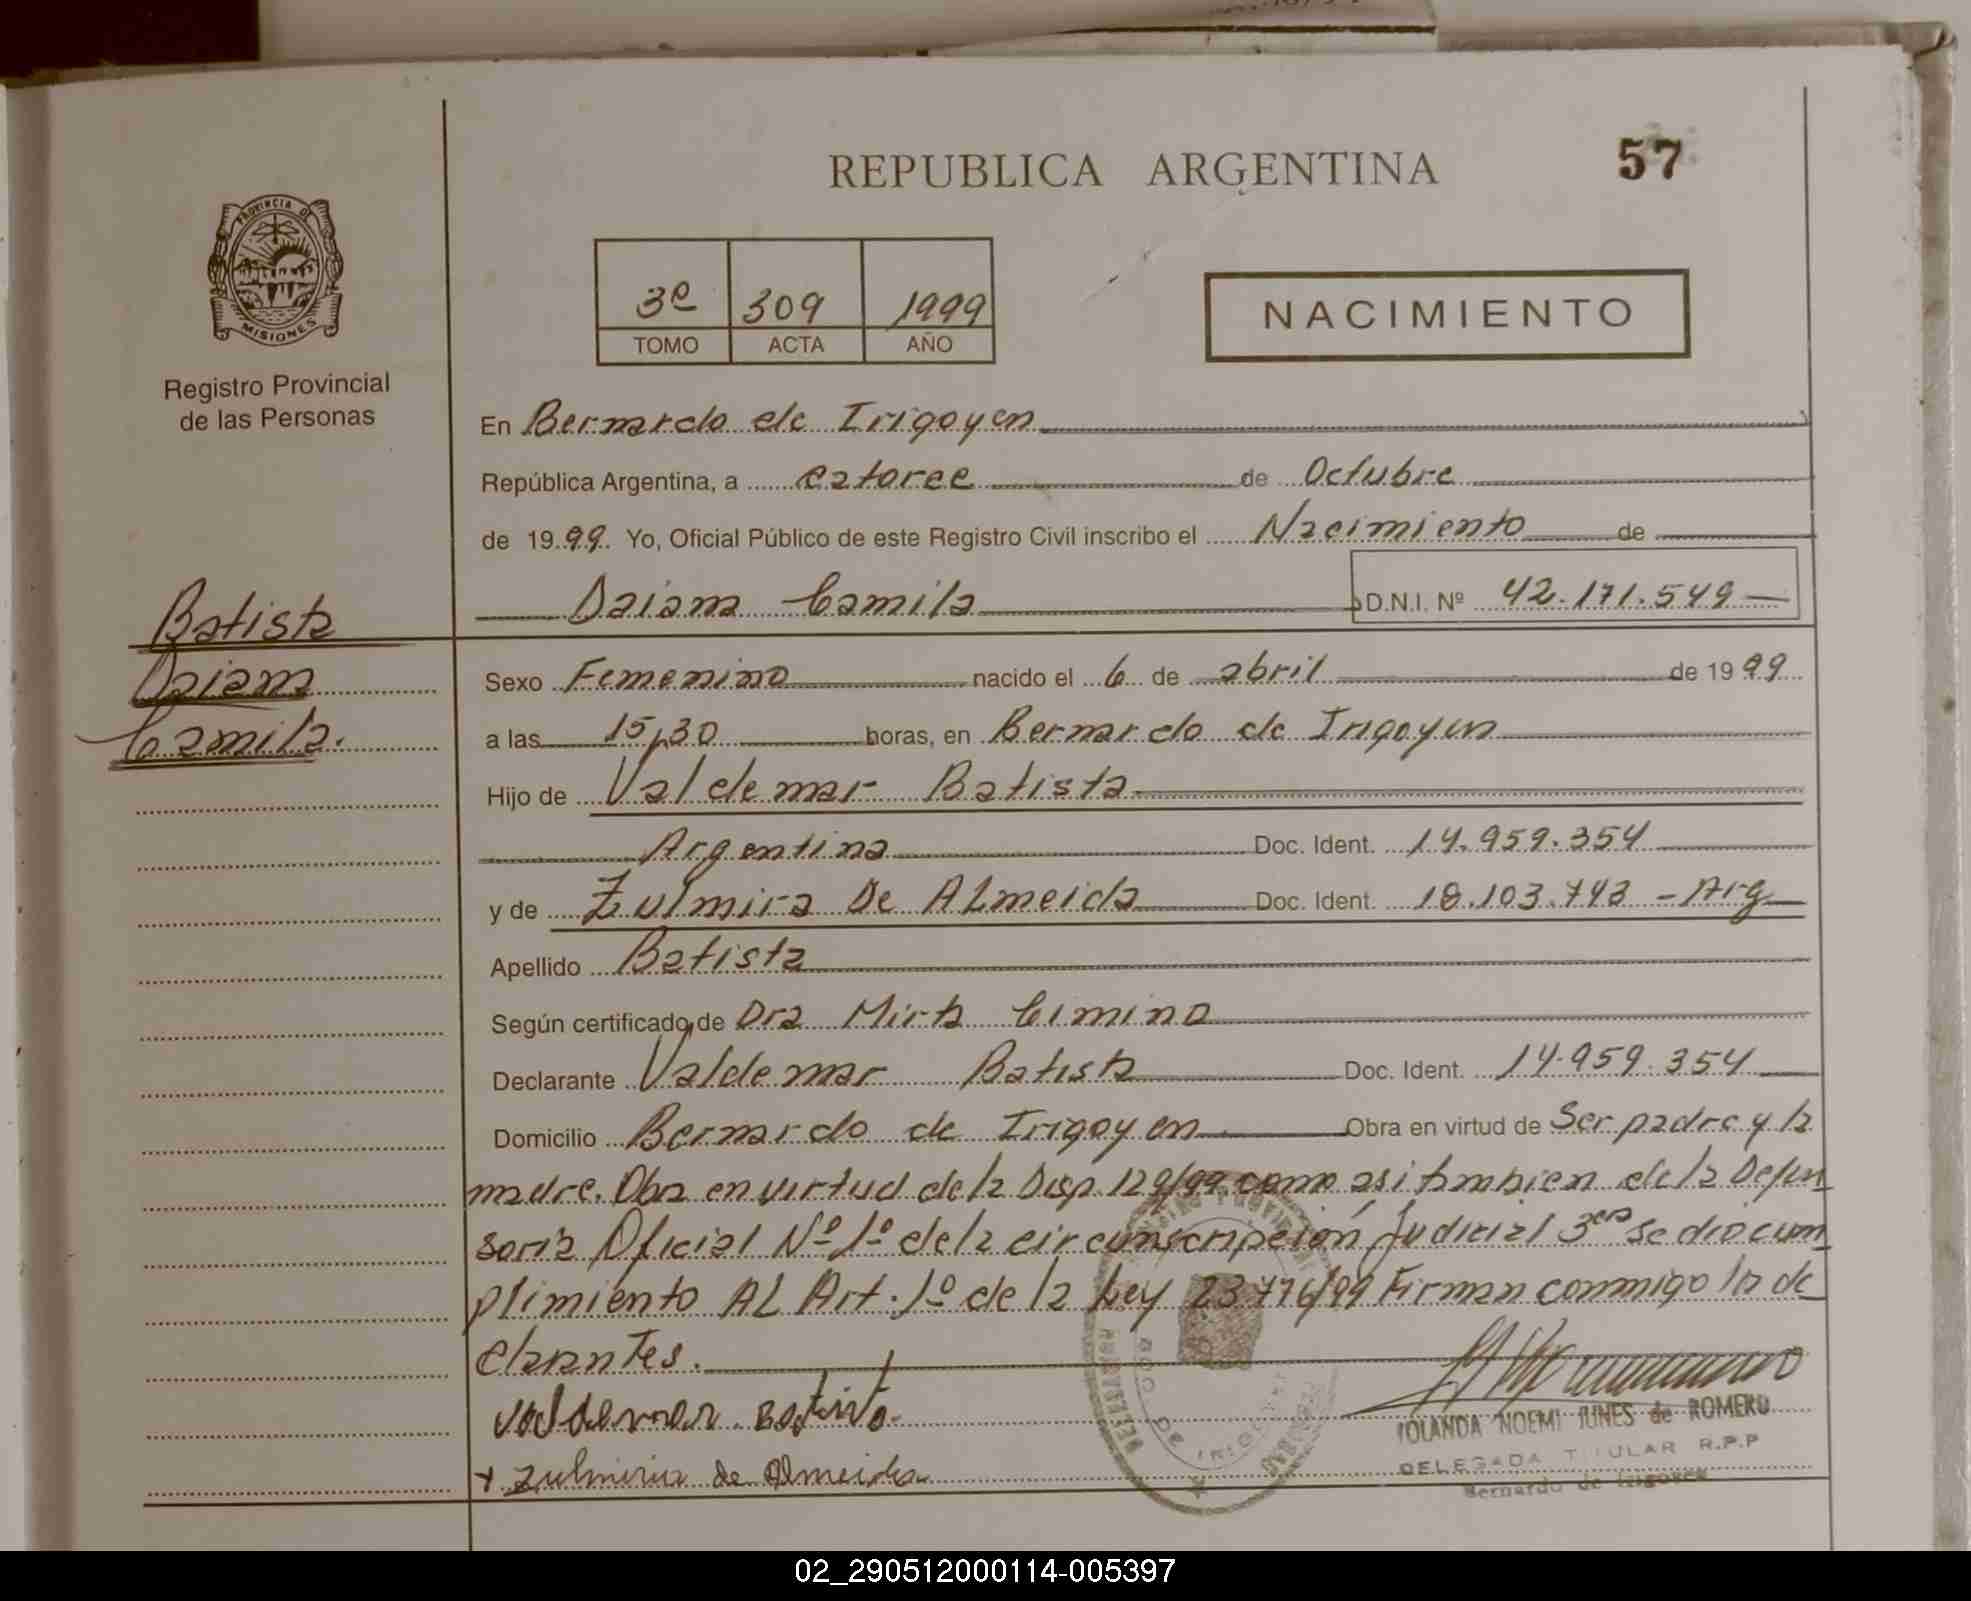 REPUBLICA ARGENTINA
57
PROVINCIA DE
MISIONES
Registro Provincial
de las Personas
3º 309 1999
TOMO ACTA AÑO
NACIMIENTO
En Bernardo de Irigoyen
República Argentina, a catorce de Octubre
de 1999. Yo, Oficial Público de este Registro Civil inscribo el Nacimiento de
Daiana Camila D.N.I. Nº 42.171.549
Batista
Daiana
Camila.
Sexo Femenino nacido el 6 de abril de 1999
a las 15,30 horas, en Bernardo de Irigoyen
Hijo de Valdemar Batista
Argentina Doc. Ident. 14.959.354
y de Zulmira De ALmeida Doc. Ident. 18.103.743 - Arg
Apellido Batista
Según certificado de Dra Mirta Cimino
Declarante Valdemar Batista Doc. Ident. 14.959.354
Domicilio Bernardo de Irigoyen Obra en virtud de Ser padre y la
madre. Oba en virtud de la Disp. 129/99 como asi tambien de la Defen
soria Oficial Nº 1º de la circunscripción Judicial 3era se dio cum
plimiento AL Art. 1º de la Ley 23776/99 Firman conmigo los de
clarantes.
Valdemar Batista
+ Zulmira de Almeida
YOLANDA NOEMI JUNES de ROMERO
DELEGADA TITULAR R.P.P
Bernardo de Irigoyen
02_290512000114-005397